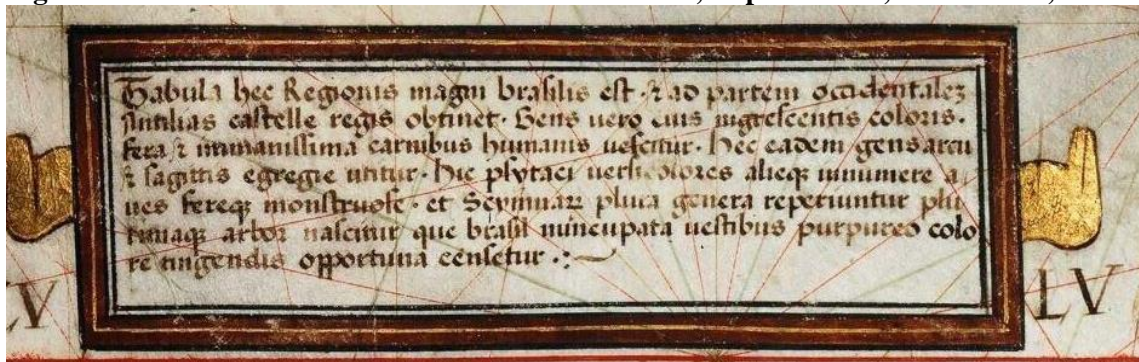 Tabula hec Regionis magni brasilis est · & ad partem occidentalez
Antilias castelle regis obtinet · Gens vero eius nigrescentis coloris ·
fera & immanissima carnibus humanis vescitur · Hec eadem gens arcu
& sagittis egregie utitur · Hic psytaci versicolores alieqз innumere a
ves fereqз monstruose · et Seyminarꝝ plura genera reperiuntur plu
rimaqз arbor nascitur que brasil nuncupata vestibus purpureo colo
re tingendis opportuna censetur ·:~
LV
LV